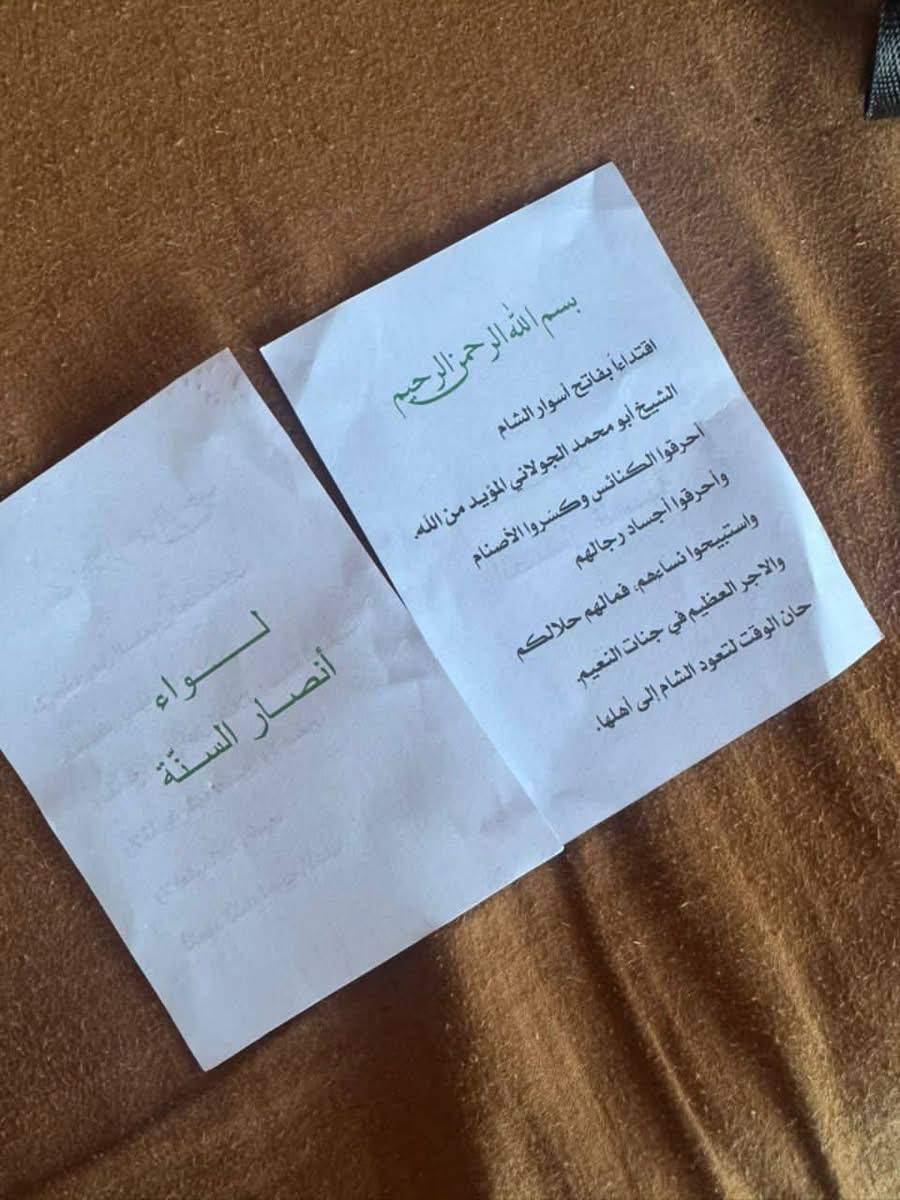 بسم الله الرحمن الرحيم
اقتداءاً بفاتح أسوار الشام
الشيخ أبو محمد الجولاني المؤيد من الله.
أحرقوا الكنائس وكسروا الأصنام
وأحرقوا أجساد رجالهم
واستبيحوا نساءهم. فمالهم حلالكم
والاجر العظيم في جنات النعيم.
حان الوقت لتعود الشام إلى أهلها.
لـــواء
أنصار السنّة